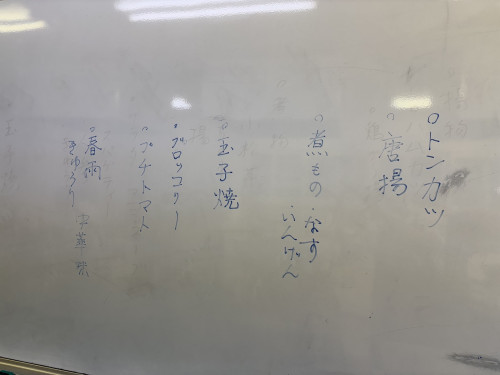 ○トンカツ
○唐揚
○煮もの・なす
いんげん
○玉子焼
・ブロッコリー
○プチトマト
○春雨
きゅうり 中華